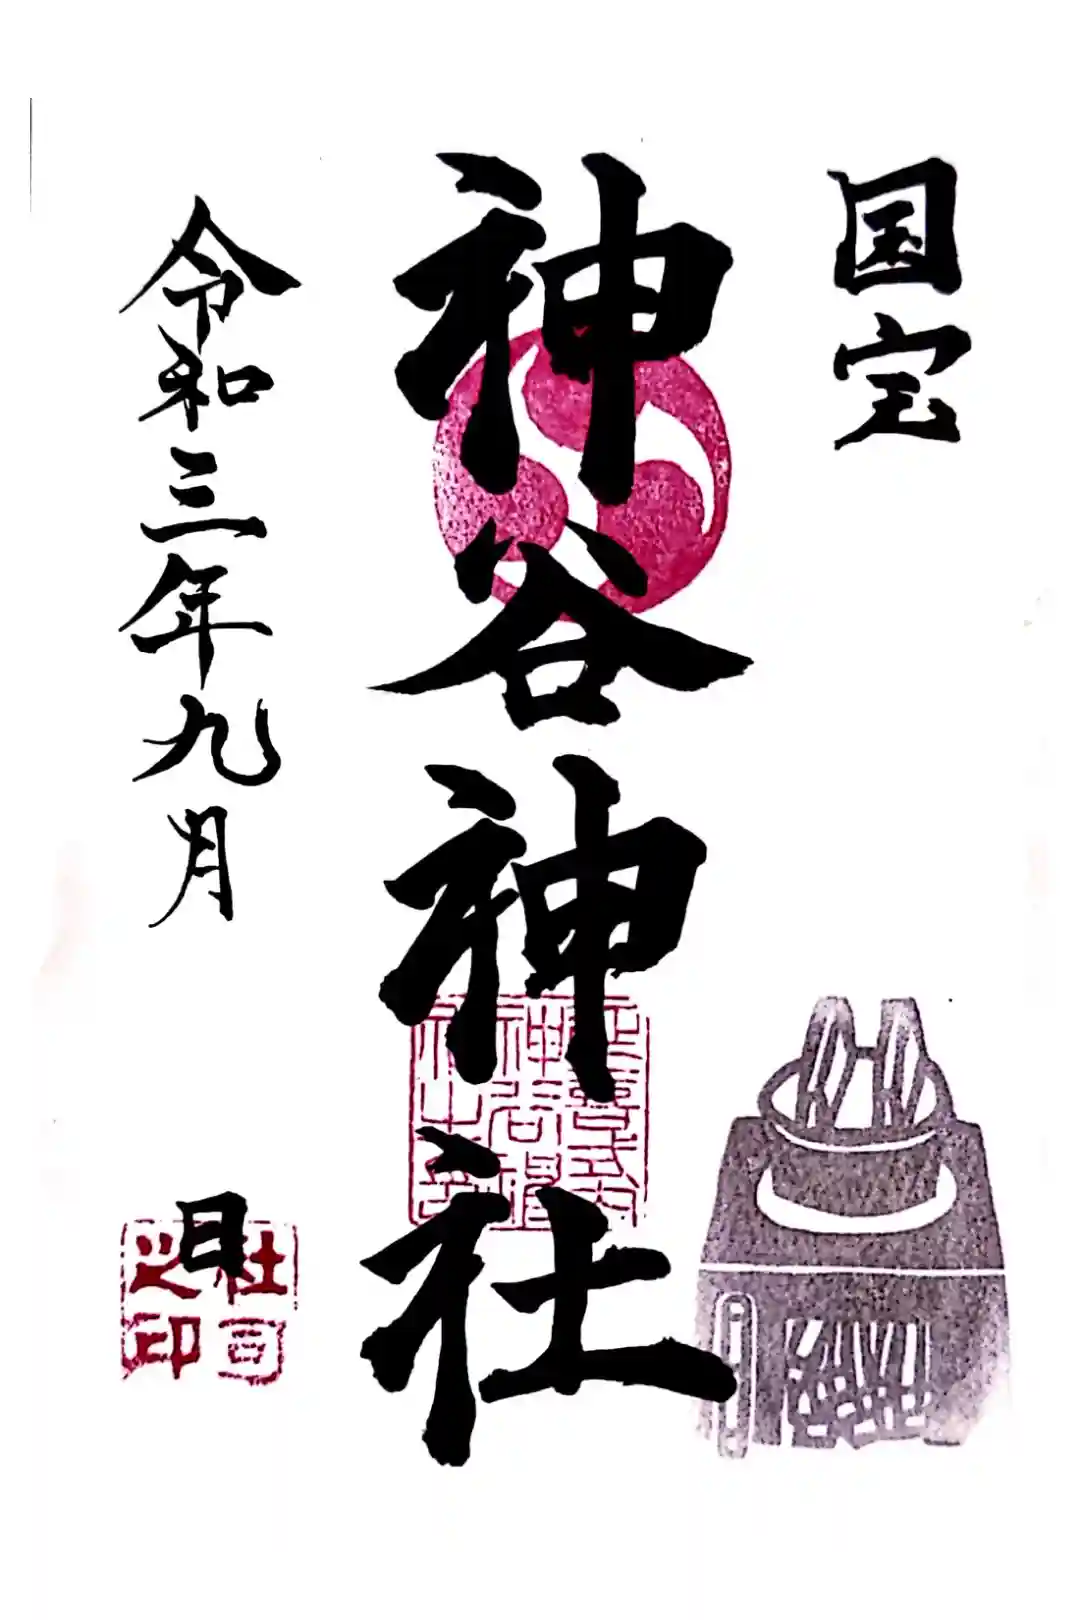 国宝
神谷神社
令和三年九月
日
社司
之印